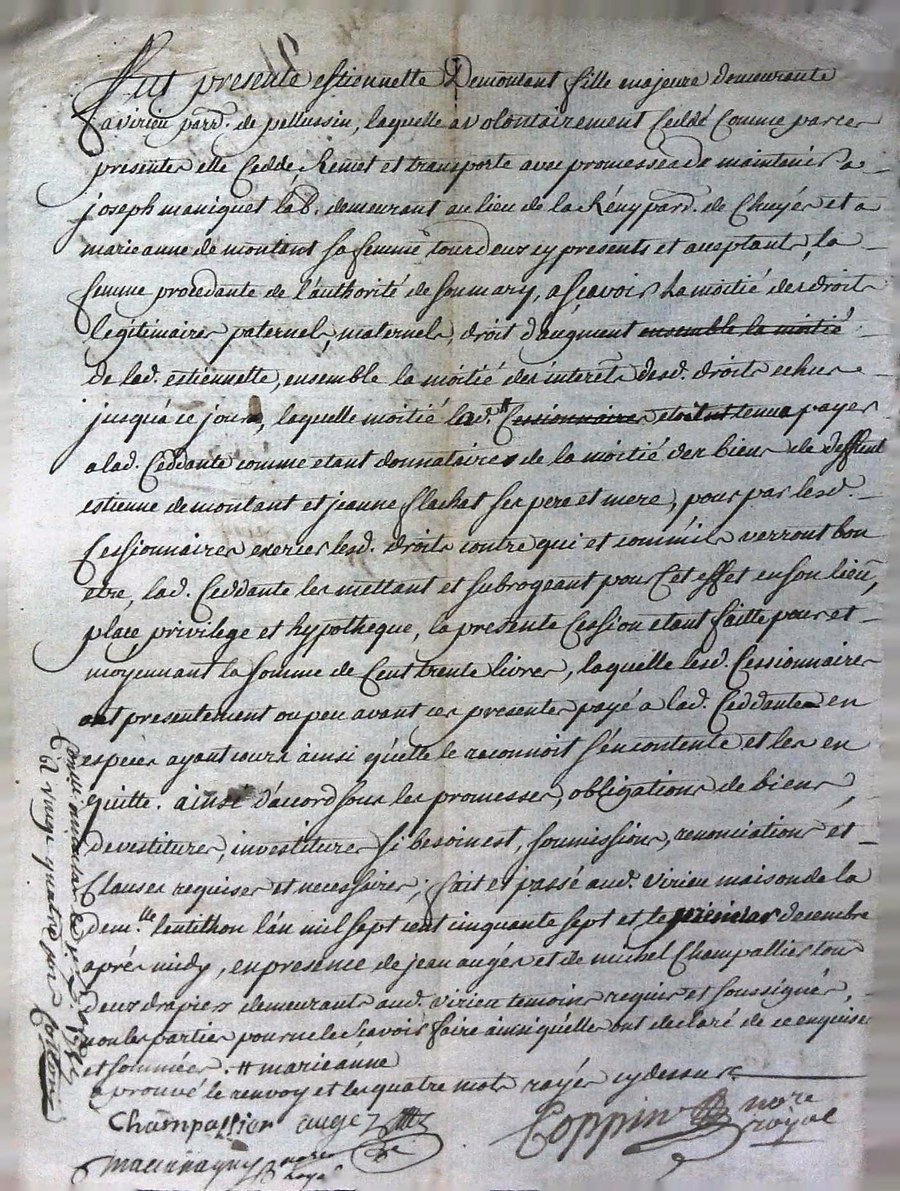 Fut presente estiennette Demontant fille majeure demeurante
a virieu parr. de pellussin, laquelle a volontairement Ceddé Comme par ces
presentes elle Cedde, Remet et transporte avec promesse de maintenir a
joseph maniquet lab. demeurant au lieu de la Rény parr. de Chuyer et a
marieanne de montant sa femme tous deux cy presents et acceptants, la
femme procedante de l'authorité de son mary, a scavoir La moitié des droits
legitimaires paternels, maternels, droit d'augment ensemble la moitié
de lad. estiennette, ensemble la moitié des interets desd. droits echus
jusqu'a ce jour, laquelle moitié lad. # Cessionnaires etoit tenue payer
a lad. Ceddante comme etant donnataire de la moitié des biens de deffunt
estienne demontant et jeanne flachet ses pere et mere, pour par lesd.
Cessionnaires exercer lesd. droits contre qui et comm'ils verront bon
etre, lad. Ceddante les mettant et subrogeant pour Cet effet en son lieu,
place, privilege et hypotheque, la presente Cession etant faitte pour et
moyennant la somme de Cent trente livres, laquelle lesd. Cessionnaires
ont presentement ou peu avant ces presentes payé a lad. Ceddante en
especes ayant cours ainsi qu'elle le reconnoit s'en contente et les en
quitte. ainsi d'accord sous les promesses, obligations de biens,
devestitures, investitures si besoin est, soumissions, renonciations et
Clauses requises et necessaires; fait et passé aud. virieu maison de la
dem.lle lentithon l'an mil sept cent cinquante sept et le premier decembre
aprés midy, en presence de jean augér et de michel Champallier tous
deux drapiers demeurants aud. virieu temoins requis et soussignés,
non les parties pour ne le scavoir faire ainsi qu'elles ont declaré de ce enquises
et sommées. # marieanne
aprouvé le renvoy et les quatre mots rayés cy dessus
Champallier auger
Coppin nore
royal
a vingt quatre sols